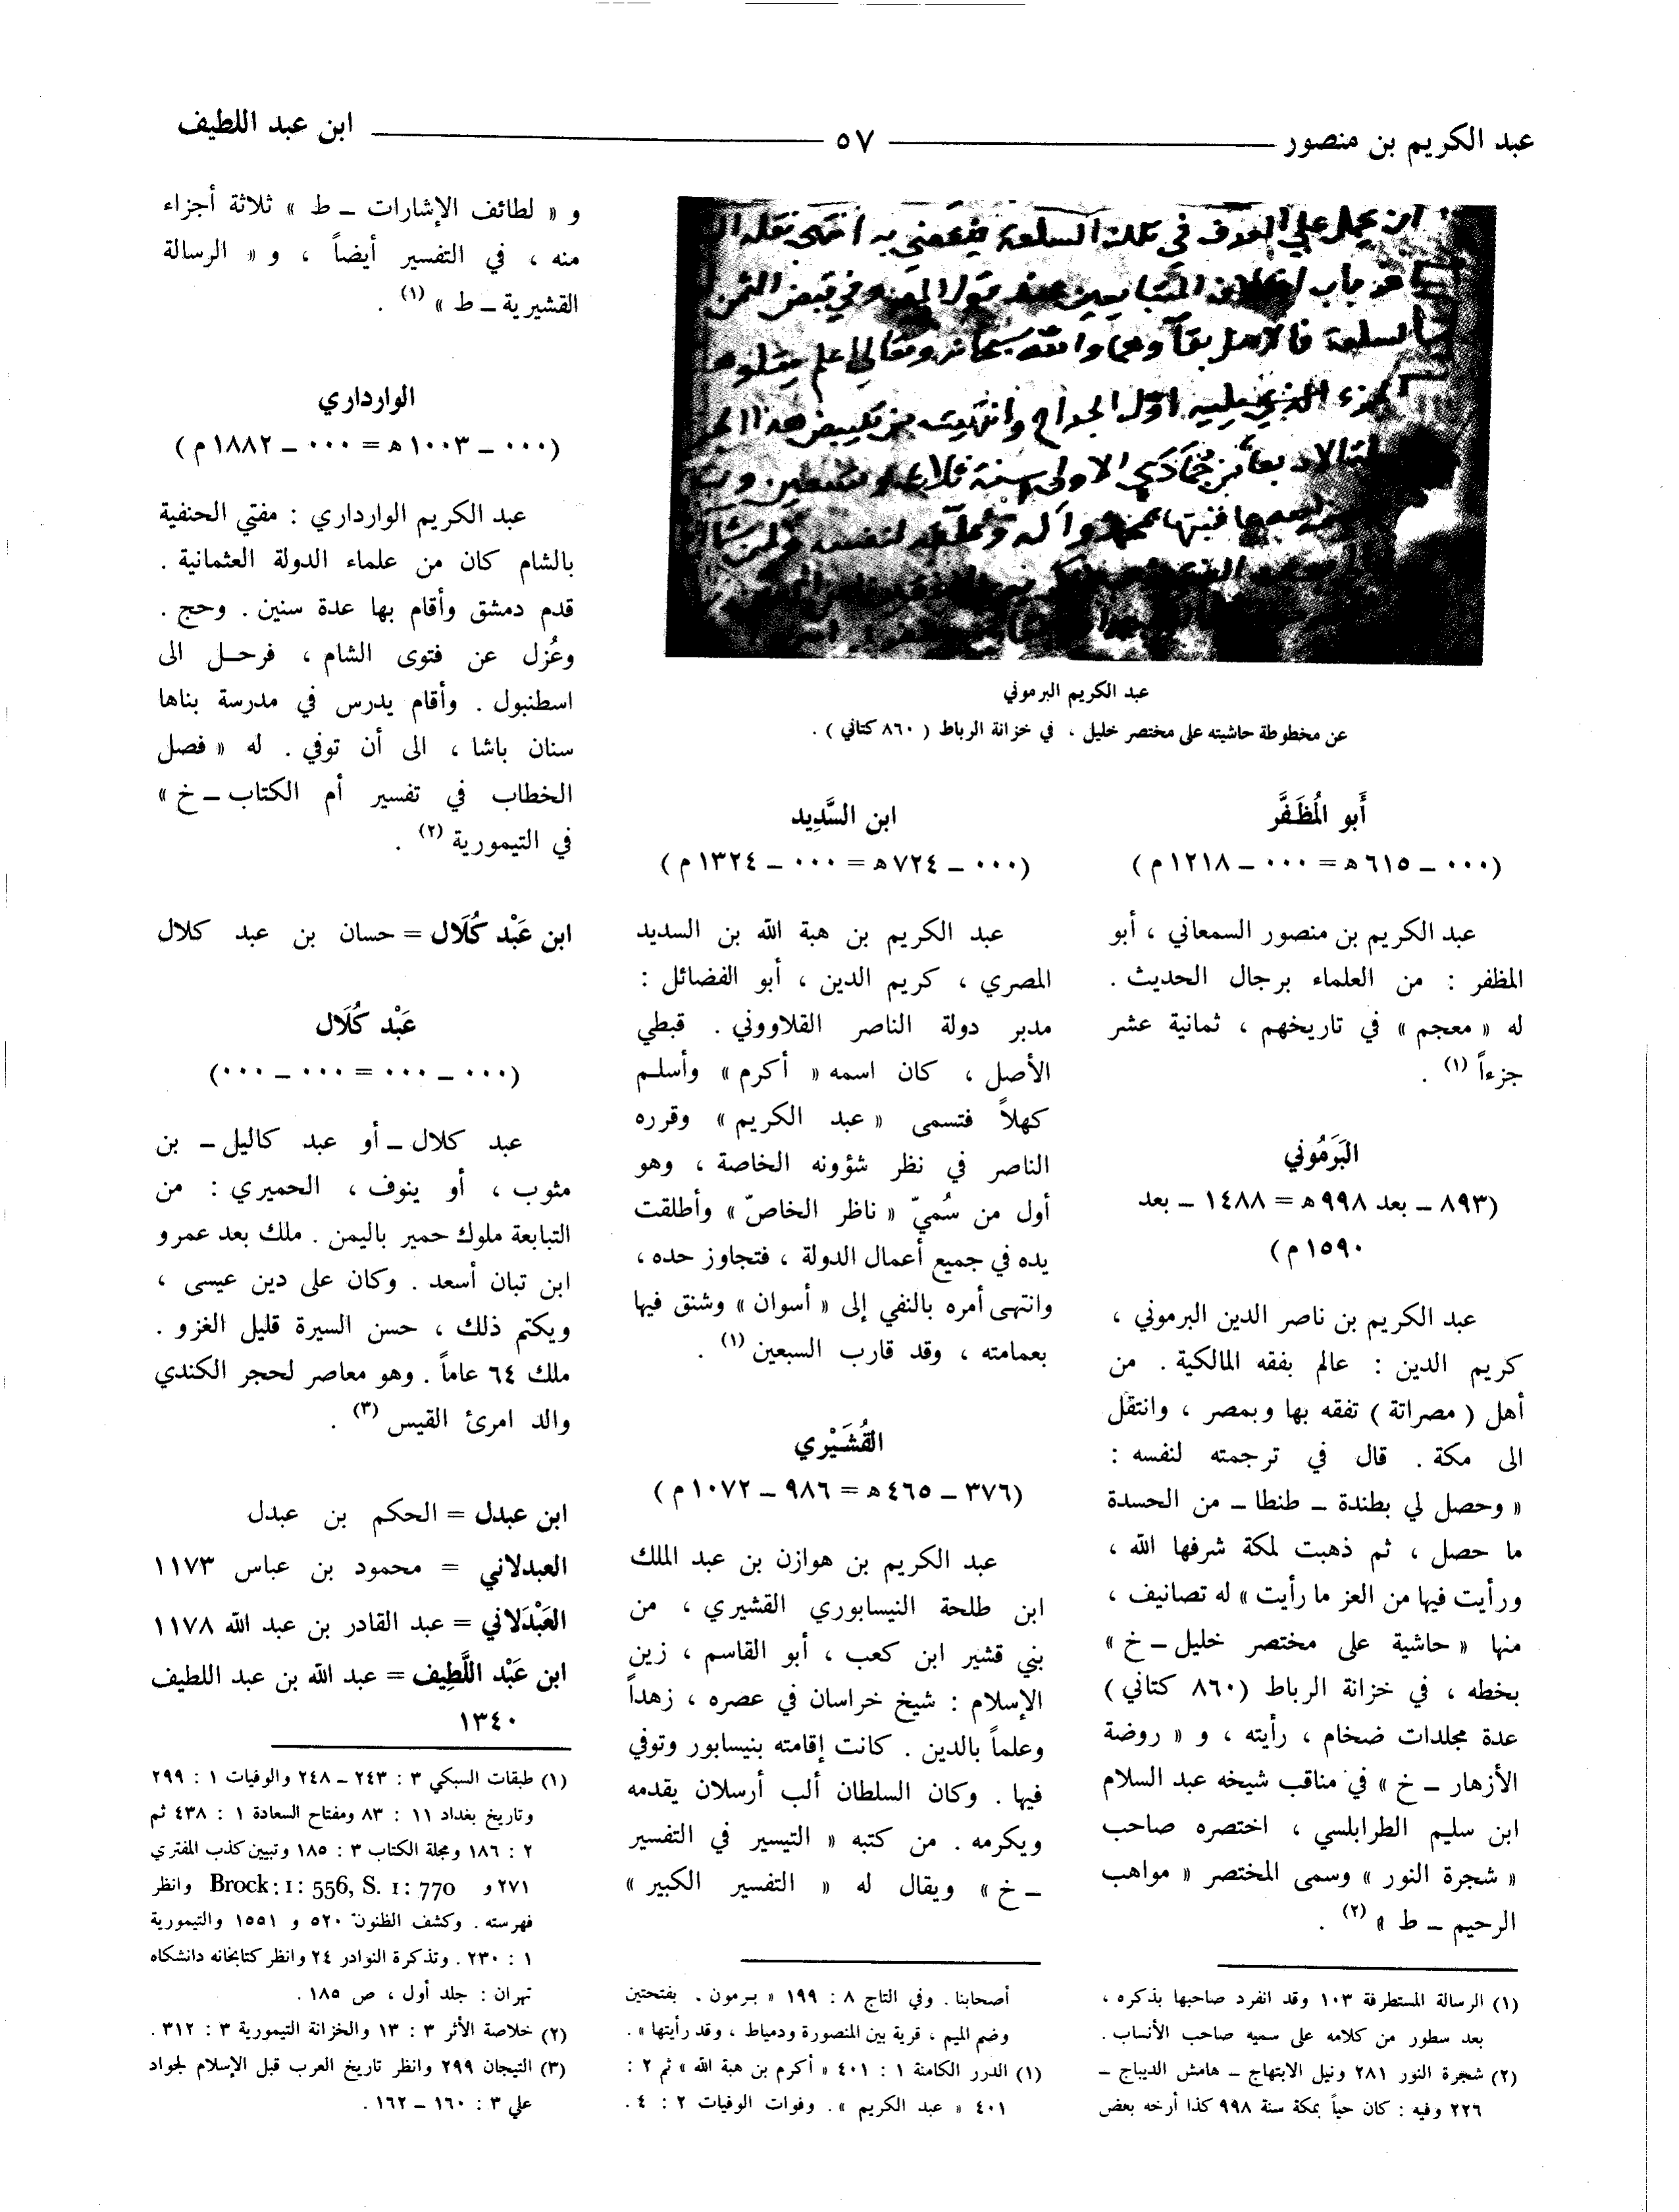 عبد الكريم بن منصور ٥٧ ابن عبد اللطيف
عبد الكريم البرموني
عن مخطوطة حاشيته على مختصر خليل ، في خزانة الرباط ( ٨٦٠ كتاني ) .
أَبو المُظَفَّر
(٠٠٠ ــ ٦١٥ هـ = ٠٠٠ ــ ١٢١٨ م)
عبد الكريم بن منصور السمعاني ، أبو
المظفر : من العلماء برجال الحديث .
له « معجم » في تاريخهم ، ثمانية عشر
جزءاً (١) .
البَرَمُوني
(٨٩٣ ــ بعد ٩٩٨ هـ = ١٤٨٨ ــ بعد
١٥٩٠ م)
عبد الكريم بن ناصر الدين البرموني ،
كريم الدين : عالم بفقه المالكية . من
أهل ( مصراتة ) تفقه بها وبمصر ، وانتقل
الى مكة . قال في ترجمته لنفسه :
« وحصل لي بطندة ــ طنطا ــ من الحسدة
ما حصل ، ثم ذهبت لمكة شرفها الله ،
ورأيت فيها من العز ما رأيت » له تصانيف ،
منها « حاشية على مختصر خليل ــ خ »
بخطه ، في خزانة الرباط (٨٦٠ كتاني)
عدة مجلدات ضخام ، رأيته ، و « روضة
الأزهار ــ خ » في مناقب شيخه عبد السلام
ابن سليم الطرابلسي ، اختصره صاحب
« شجرة النور » وسمى المختصر « مواهب
الرحيم ــ ط » (٢) .
(١) الرسالة المستطرفة ١٠٣ وقد انفرد صاحبها بذكره ،
بعد سطور من كلامه على سميه صاحب الأنساب .
(٢) شجرة النور ٢٨١ ونيل الابتهاج ــ هامش الديباج ــ
٢٢٦ وفيه : كان حياً بمكة سنة ٩٩٨ كذا أرخه بعض
ابن السَّدِيد
(٠٠٠ ــ ٧٢٤ هـ = ٠٠٠ ــ ١٣٢٤ م)
عبد الكريم بن هبة الله بن السديد
المصري ، كريم الدين ، أبو الفضائل :
مدبر دولة الناصر القلاووني . قبطي
الأصل ، كان اسمه « أكرم » وأسلم
كهلاً فتسمى « عبد الكريم » وقرره
الناصر في نظر شؤونه الخاصة ، وهو
أول من سُميّ « ناظر الخاصّ » وأطلقت
يده في جميع أعمال الدولة ، فتجاوز حده ،
وانتهى أمره بالنفي إلى « أسوان » وشنق فيها
بعمامته ، وقد قارب السبعين (١) .
القُشَيْري
(٣٧٦ ــ ٤٦٥ هـ = ٩٨٦ ــ ١٠٧٢ م)
عبد الكريم بن هوازن بن عبد الملك
ابن طلحة النيسابوري القشيري ، من
بني قشير ابن كعب ، أبو القاسم ، زين
الإسلام : شيخ خراسان في عصره ، زهداً
وعلماً بالدين . كانت إقامته بنيسابور وتوفي
فيها . وكان السلطان ألب أرسلان يقدمه
ويكرمه . من كتبه « التيسير في التفسير
ــ خ » ويقال له « التفسير الكبير »
أصحابنا . وفي التاج ٨ : ١٩٩ « برمون . بفتحتين
وضم الميم ، قرية بين المنصورة ودمياط ، وقد رأيتها » .
(١) الدرر الكامنة ١ : ٤٠١ « أكرم بن هبة الله » ثم ٢ :
٤٠١ « عبد الكريم » . وفوات الوفيات ٢ : ٤ .
و « لطائف الإشارات ــ ط » ثلاثة أجزاء
منه ، في التفسير أيضاً ، و « الرسالة
القشيرية ــ ط » (١) .
الوارداري
(٠٠٠ ــ ١٠٠٣ هـ = ٠٠٠ ــ ١٨٨٢ م)
عبد الكريم الوارداري : مفتي الحنفية
بالشام كان من علماء الدولة العثمانية .
قدم دمشق وأقام بها عدة سنين . وحج .
وعُزل عن فتوى الشام ، فرحل الى
اسطنبول . وأقام يدرس في مدرسة بناها
سنان باشا ، الى أن توفي . له « فصل
الخطاب في تفسير أم الكتاب ــ خ »
في التيمورية (٢) .
ابن عَبْد كُلَال = حسان بن عبد كلال
عَبْد كُلَال
(٠٠٠ ــ ٠٠٠ = ٠٠٠ ــ ٠٠٠)
عبد كلال ــ أو عبد كاليل ــ بن
مثوب ، أو ينوف ، الحميري : من
التبابعة ملوك حمير باليمن . ملك بعد عمرو
ابن تبان أسعد . وكان على دين عيسى ،
ويكتم ذلك ، حسن السيرة قليل الغزو .
ملك ٦٤ عاماً . وهو معاصر لحجر الكندي
والد امرئ القيس (٣) .
ابن عبدل = الحكم بن عبدل
العبدلاني = محمود بن عباس ١١٧٣
العَبْدَلاني = عبد القادر بن عبد الله ١١٧٨
ابن عَبْد اللَّطِيف = عبد الله بن عبد اللطيف
١٣٤٠
(١) طبقات السبكي ٣ : ٢٤٣ ــ ٢٤٨ والوفيات ١ : ٢٩٩
وتاريخ بغداد ١١ : ٨٣ ومفتاح السعادة ١ : ٤٣٨ ثم
٢ : ١٨٦ ومجلة الكتاب ٣ : ١٨٥ وتبيين كذب المفتري
٢٧١ و Brock: 1: 556, S. 1: 770 وانظر
فهرسته . وكشف الظنون ٥٢٠ و ١٥٥١ والتيمورية
١ : ٢٣٠ . وتذكرة النوادر ٢٤ وانظر كتابخانه دانشكاه
تهران : جلد أول ، ص ١٨٥ .
(٢) خلاصة الأثر ٣ : ١٣ والخزانة التيمورية ٣ : ٣١٢ .
(٣) التيجان ٢٩٩ وانظر تاريخ العرب قبل الإسلام لجواد
علي ٣ : ١٦٠ ــ ١٦٢ .